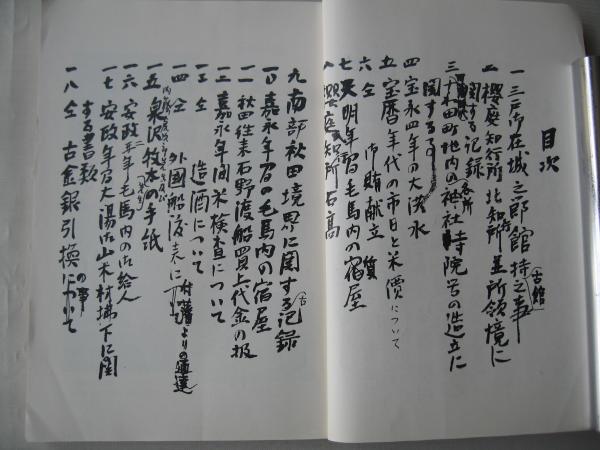 目次
一 三戸御在城之節館持之事 古館
二 櫻庭知行所北知駒並所領境に
関する記録
三 十和田町地内の神社寺院等の造立に
関する
四 宝永四年の大洪水
五 宝暦年代の市日と米價について
六 仝 御賄献立
七 天明年間毛馬内の宿屋
八 櫻庭知行所石高
九 南部秋田境界に関する古記録
一〇 嘉永年間の毛馬内の宿屋
一一 秋田往来石野渡船買上代金の扱
一二 嘉永年間米検査について
一三 仝 造酒について
一四 仝 外国船渡来に 付藩よりの通達
一五 泉沢牧太の手紙
一六 安政年毛馬内の御給人
一七 安政年間大湯御山木材拂下に関
する書類
一八 仝 古金銀引換の事について